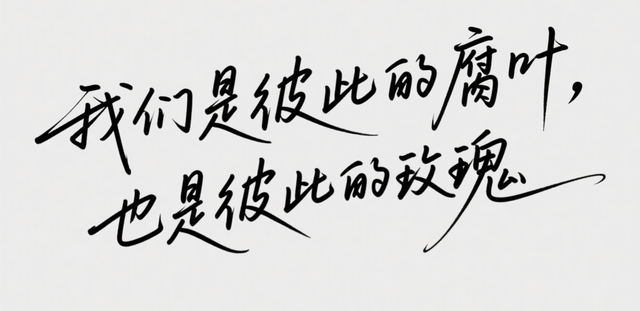 我们是彼此的腐叶，
也是彼此的玫瑰